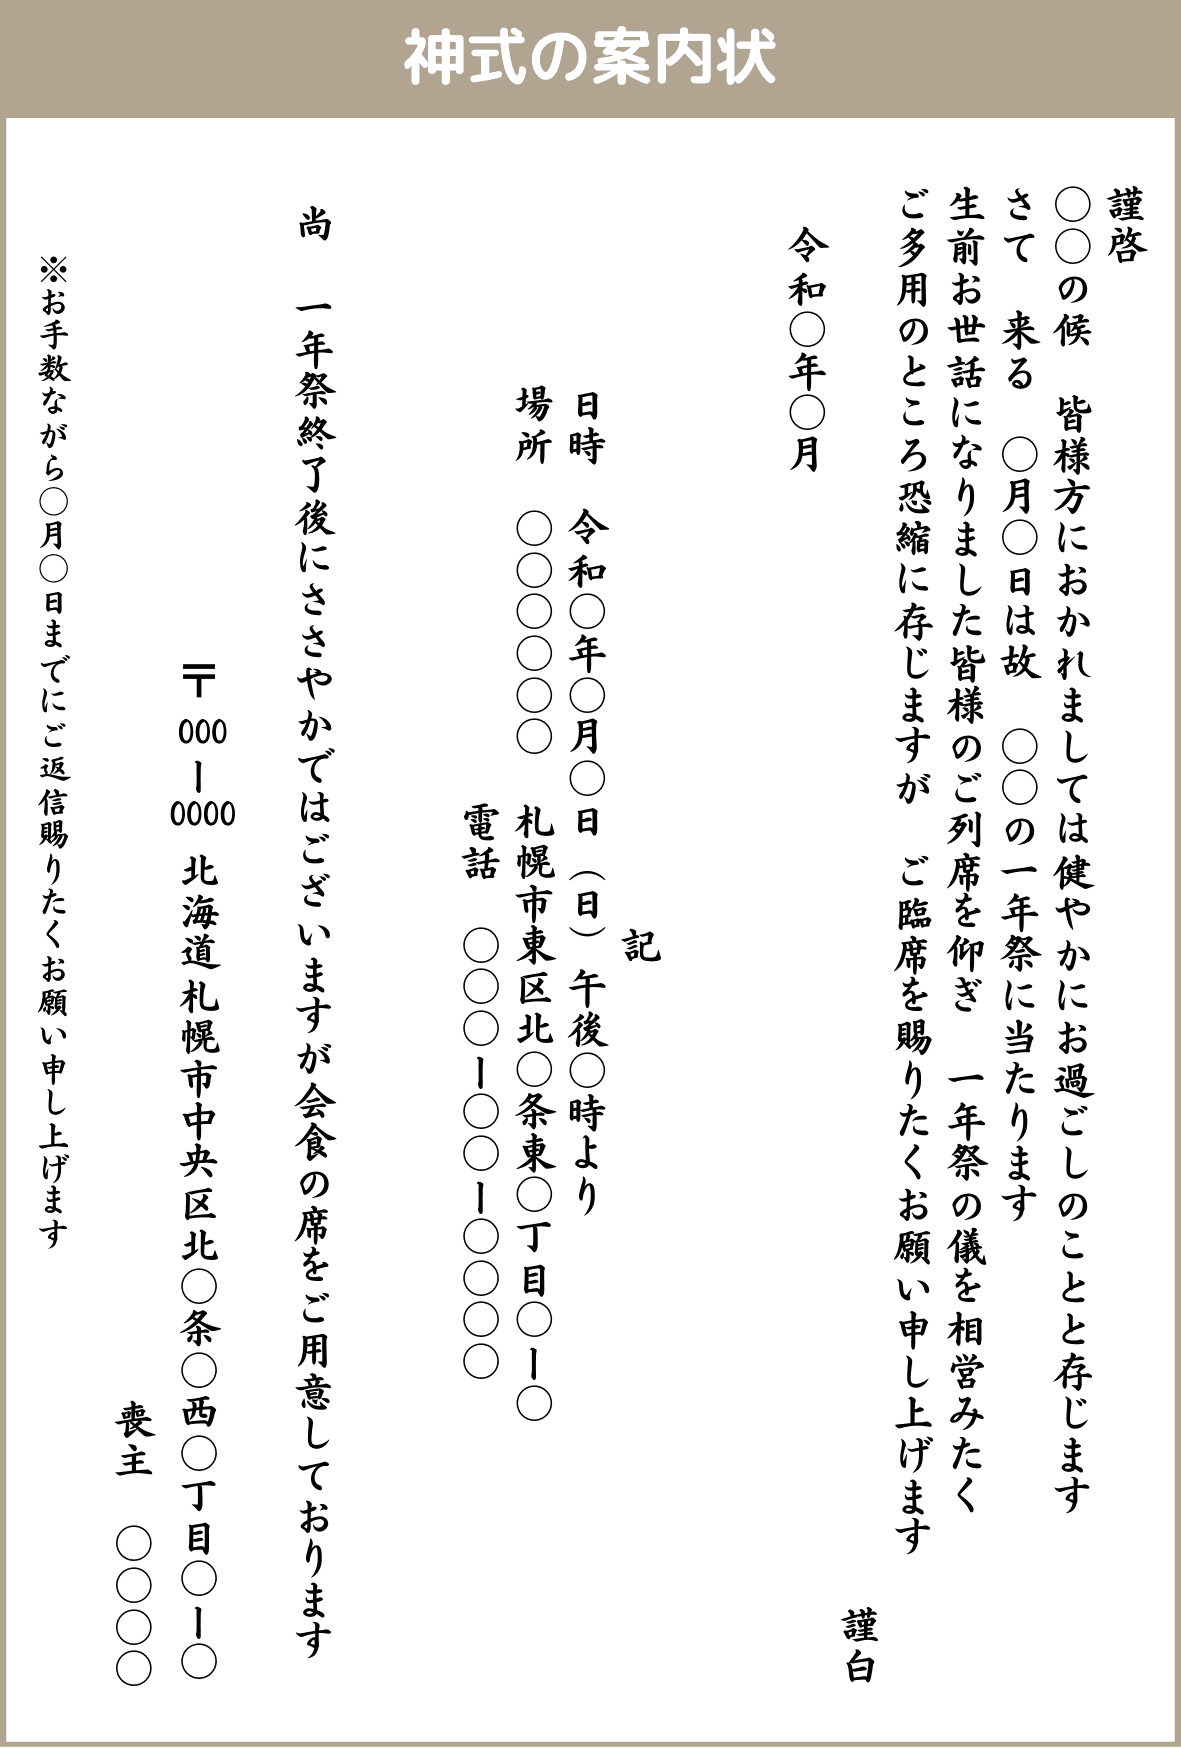 神式の案内状
謹啓
〇〇の候　皆様方におかれましては健やかにお過ごしのことと存じます
さて　来る　〇月〇日は故　〇〇の一年祭に当たります
生前お世話になりました皆様のご列席を仰ぎ　一年祭の儀を相営みたく
ご多用のところ恐縮に存じますが　ご臨席を賜りたくお願い申し上げます
謹白
令和〇年〇月
記
日時　令和〇年〇月〇日（日）午後〇時より
場所　〇〇〇〇〇〇　札幌市東区北〇条東〇丁目〇ー〇
電話　〇〇〇ー〇〇ー〇〇〇〇
尚　一年祭終了後にささやかではございますが会食の席をご用意しております
〒000ー0000 北海道札幌市中央区北〇条〇西〇丁目〇ー〇
喪主　〇〇〇〇
※お手数ながら〇月〇日までにご返信賜りたくお願い申し上げます